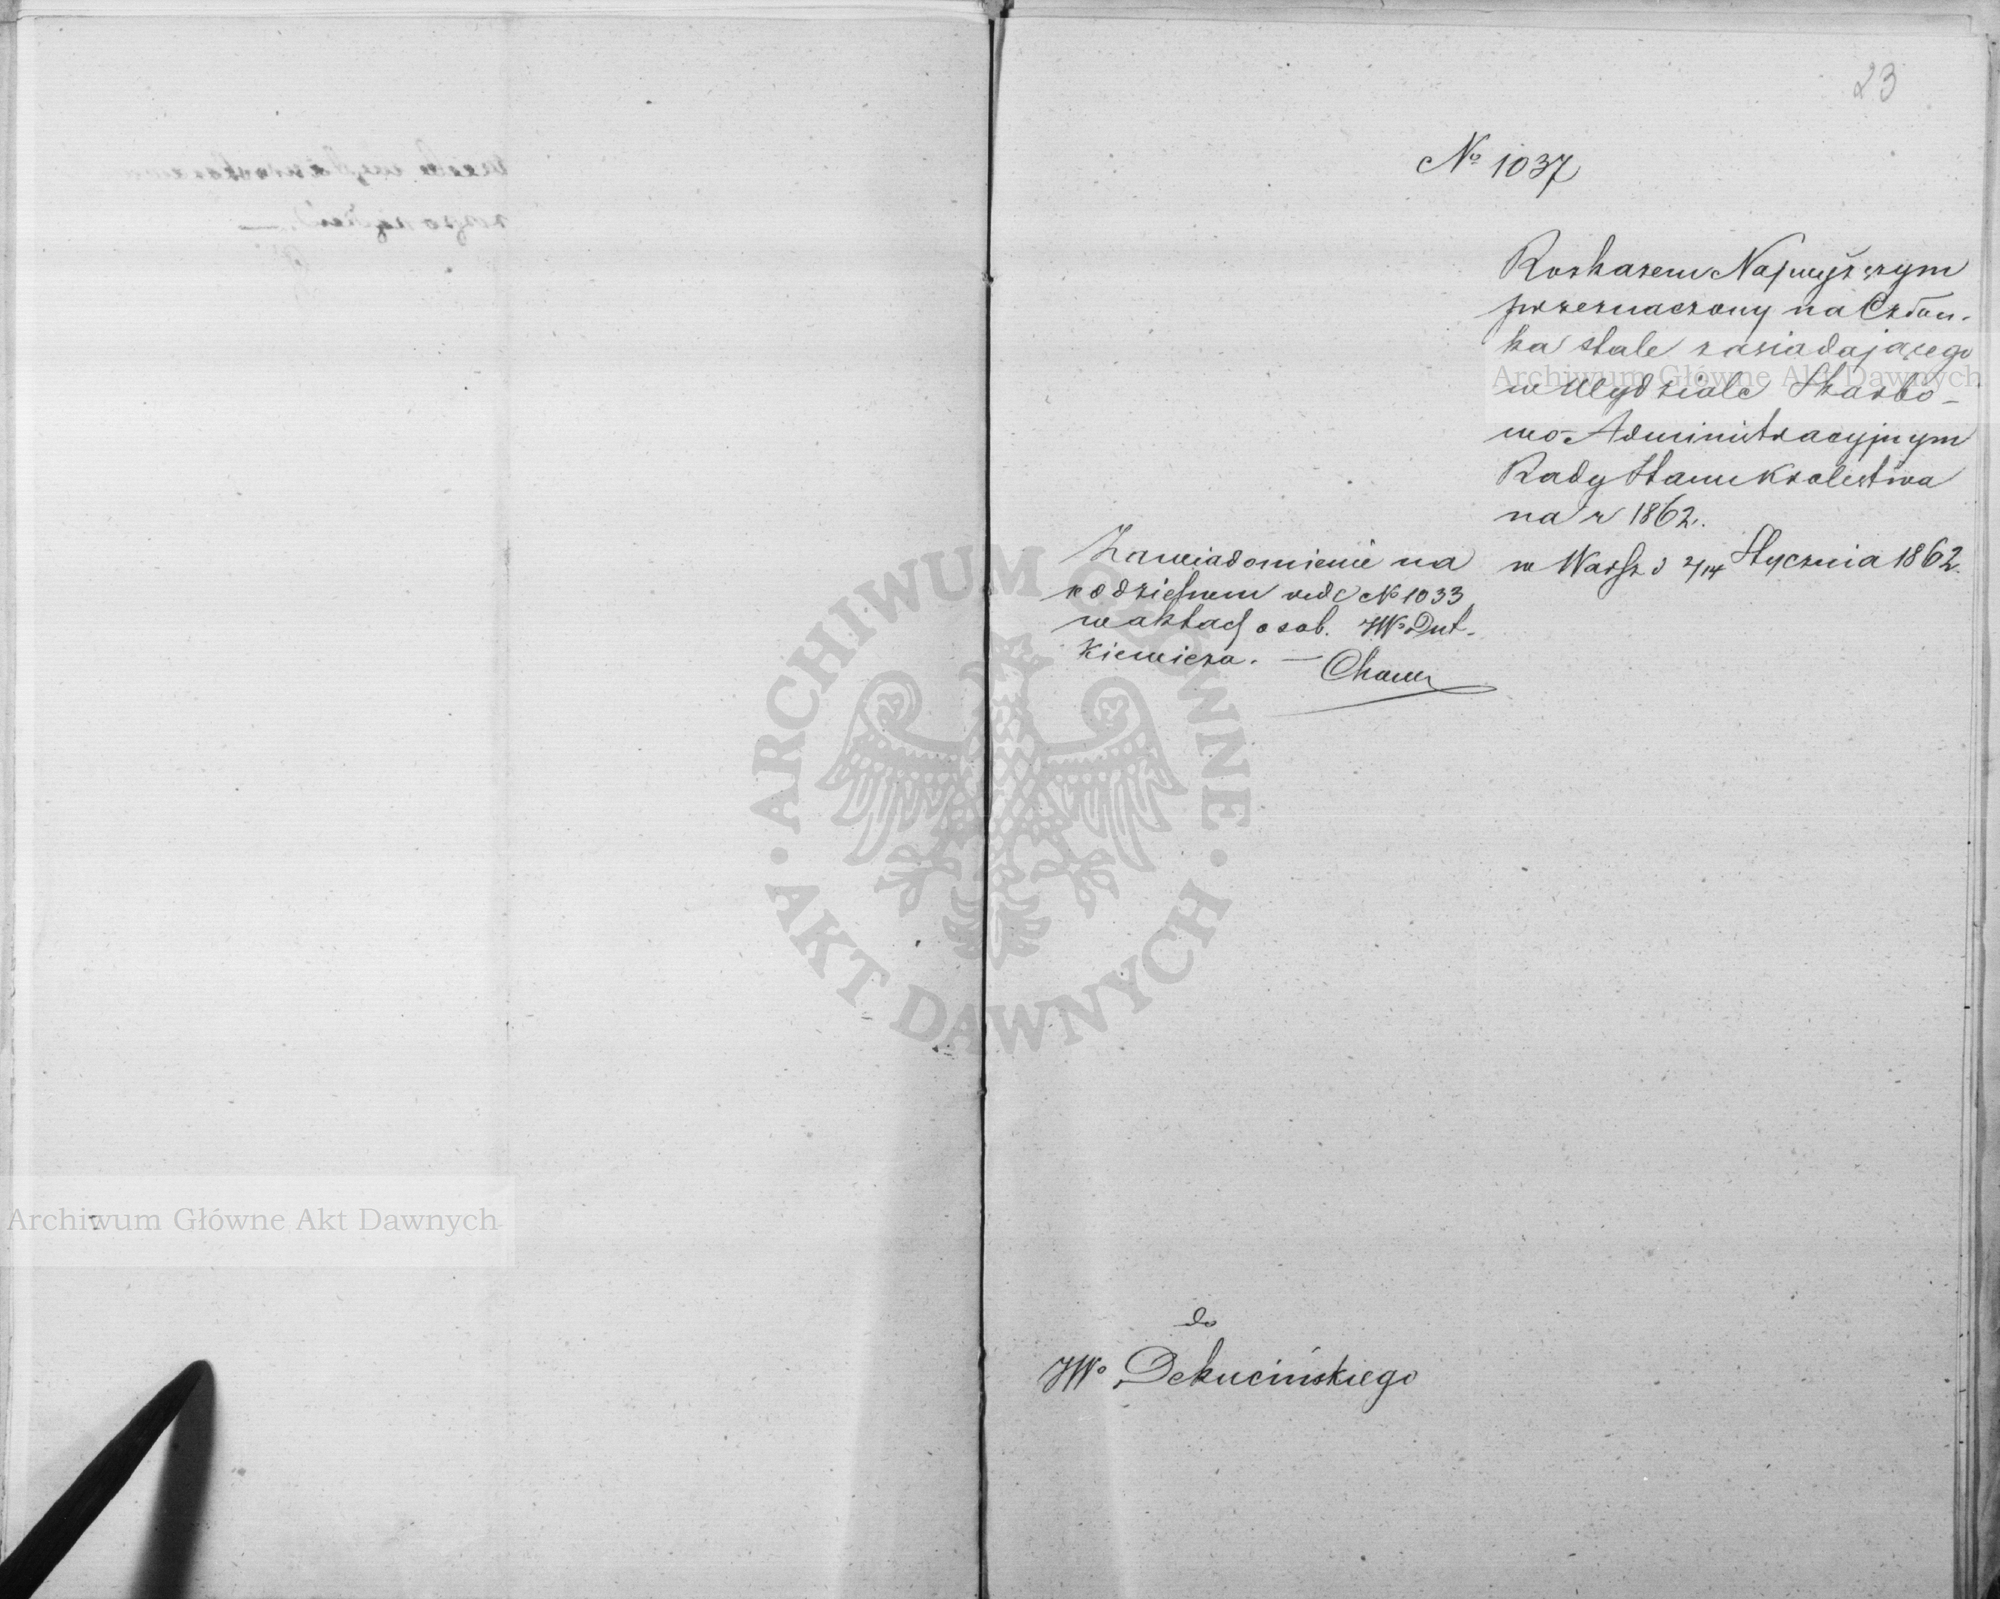 23
№ 1037
Rozkazem Najwyższym
przeznaczony na Człon-
ka stale zasiadającego
w Wydziale Skarbo-
wo-Administracyjnym
Rady Stanu Królestwa
na r 1862.
w Warsz d 2/14 Stycznia 1862.
Zawiadomienie na
rodzielnem vide № 1033
w aktach osob. JWo Dut-
kiewicza. —
do
JWo Dekucińskiego
Archiwum Główne Akt Dawnych
Archiwum Główne Akt Dawnych
ARCHIWUM GŁÓWNE
· AKT DAWNYCH ·